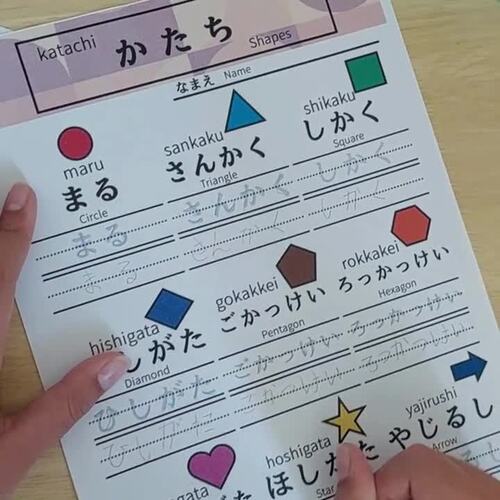 katachi かたち Shapes
なまえ Name
maru sankaku shikaku
まる さんかく しかく
Circle Triangle Square
まる さんかく しかく
まる さんかく しかく
hishigata gokakkei rokkakei
しがた ごかっけい ろっかっけい
Diamond Pentagon Hexagon
ひしがた ごかっけい ろっかっけい
ひしがた ごかっけい ろっかっけい
hoshigata yajirushi
ほしがた やじるし
Star Arrow